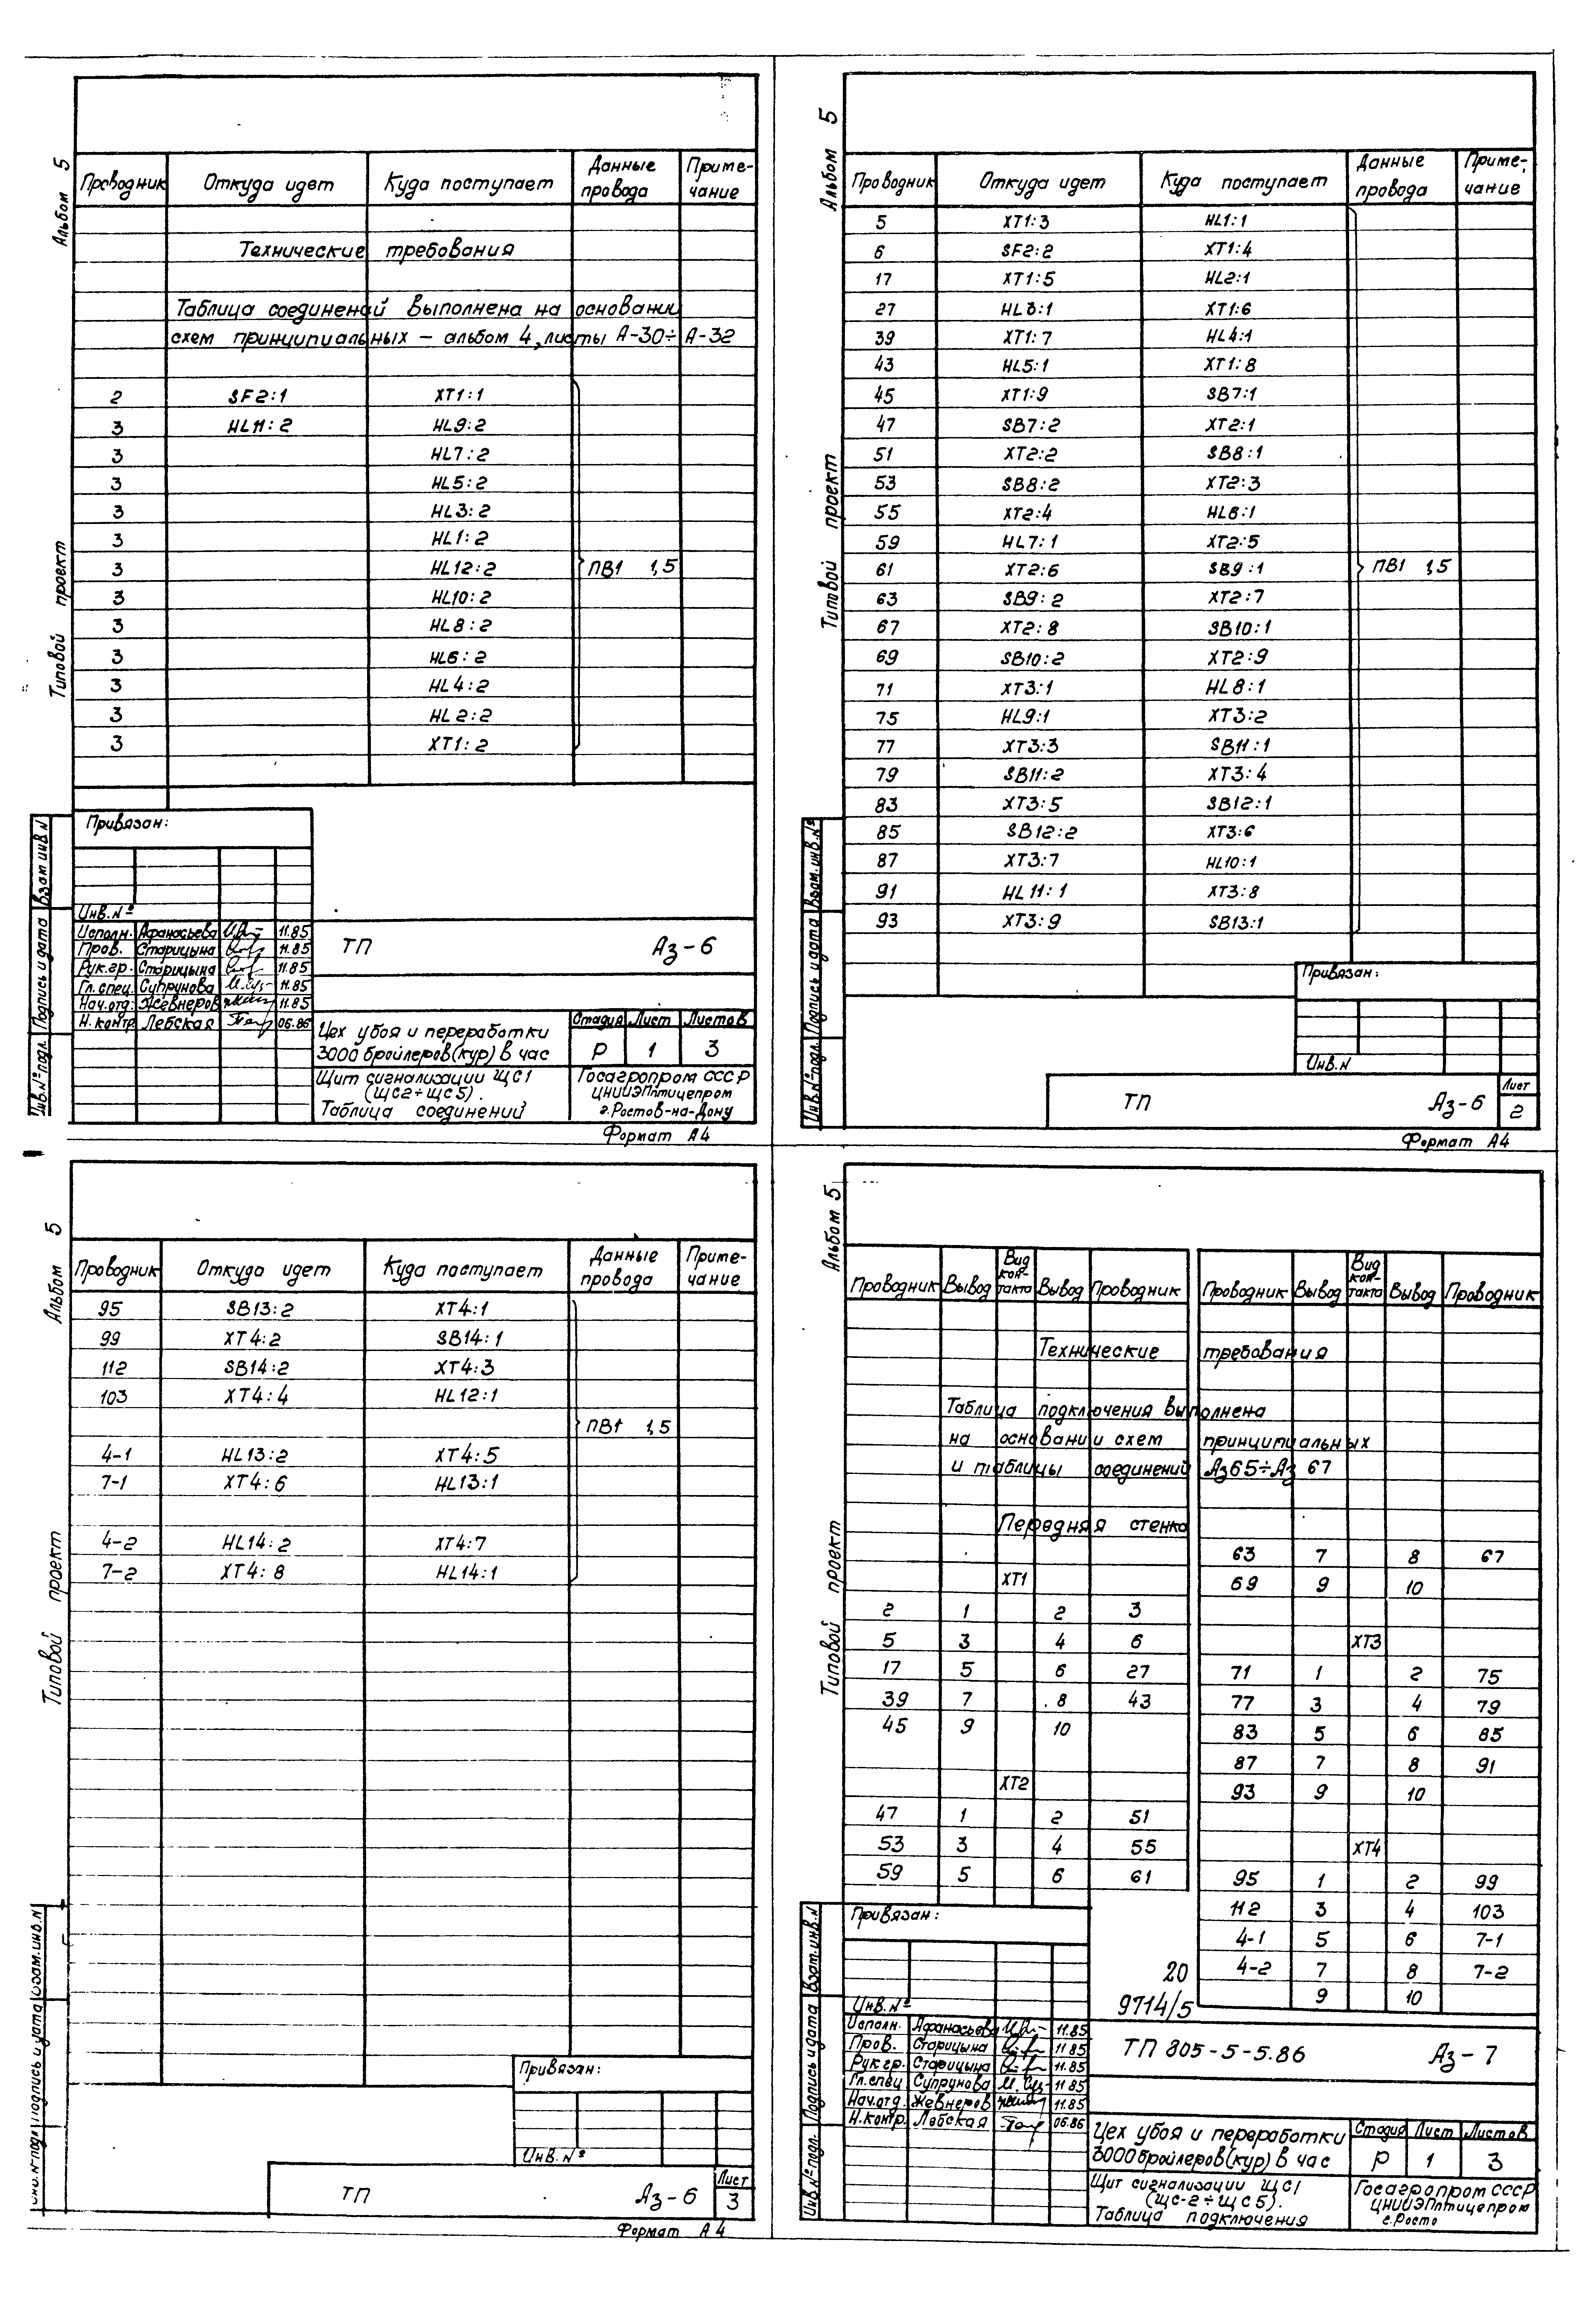 Альбом 5
Типовой проект
Проводник Откуда идет Куда поступает Данные провода Приме-чание
Технические требования
Таблица соединений выполнена на основании
схем принципиальных – альбом 4, листы А-30÷А-32
2 SF2:1 XT1:1
3 HL11:2 HL9:2
3 HL7:2
3 HL5:2
3 HL3:2
3 HL1:2
3 HL12:2 ПВ1 1,5
3 HL10:2
3 HL8:2
3 HL6:2
3 HL4:2
3 HL2:2
3 XT1:2
Привязан:
Инв.№
Исполн. Афанасьева 11.85
Пров. Старицына 11.85
Рук.гр. Старицына 11.85
Гл.спец. Супрунова 11.85
Нач.отд. Жевнеров 11.85
Н.контр. Лебская 06.86
ТП Аз-6
Цех убоя и переработки
3000 бройлеров(кур) в час
Стадия Лист Листов
Р 1 3
Щит сигнализации ЩС1
(ЩС2÷ЩС5).
Таблица соединений
Госагропром СССР
ЦНИИЭПптицепром
г.Ростов-на-Дону
Инв.№ подл. Подпись и дата Взам инв.N
Формат А4
Альбом 5
Типовой проект
Проводник Откуда идет Куда поступает Данные провода Приме-чание
5 XT1:3 HL1:1
6 SF2:2 XT1:4
17 XT1:5 HL2:1
27 HL3:1 XT1:6
39 XT1:7 HL4:1
43 HL5:1 XT1:8
45 XT1:9 SB7:1
47 SB7:2 XT2:1
51 XT2:2 SB8:1
53 SB8:2 XT2:3
55 XT2:4 HL6:1
59 HL7:1 XT2:5
61 XT2:6 SB9:1 ПВ1 1,5
63 SB9:2 XT2:7
67 XT2:8 SB10:1
69 SB10:2 XT2:9
71 XT3:1 HL8:1
75 HL9:1 XT3:2
77 XT3:3 SB11:1
79 SB11:2 XT3:4
83 XT3:5 SB12:1
85 SB12:2 XT3:6
87 XT3:7 HL10:1
91 HL11:1 XT3:8
93 XT3:9 SB13:1
Привязан:
Инв.N
ТП Аз-6 Лист 2
Инв.№ подл. Подпись и дата Взам.инв.№
Формат А4
Альбом 5
Типовой проект
Проводник Откуда идет Куда поступает Данные провода Приме-чание
95 SB13:2 XT4:1
99 XT4:2 SB14:1
112 SB14:2 XT4:3
103 XT4:4 HL12:1
ПВ1 1,5
4-1 HL13:2 XT4:5
7-1 XT4:6 HL13:1
4-2 HL14:2 XT4:7
7-2 XT4:8 HL14:1
Привязан:
Инв.№
ТП Аз-6 Лист 3
Инв.№ подл. Подпись и дата Взам.инв.N
Формат А4
Альбом 5
Типовой проект
Проводник Вывод Вид кон-такта Вывод Проводник Проводник Вывод Вид кон-такта Вывод Проводник
Технические требования
Таблица подключения выполнена
на основании схем принципиальных
и таблицы соединений Аз65÷Аз 67
Передняя стенка
XT1
2 1 2 3
5 3 4 6
17 5 6 27
39 7 8 43
45 9 10
XT2
47 1 2 51
53 3 4 55
59 5 6 61
63 7 8 67
69 9 10
XT3
71 1 2 75
77 3 4 79
83 5 6 85
87 7 8 91
93 9 10
XT4
95 1 2 99
112 3 4 103
4-1 5 6 7-1
4-2 7 8 7-2
9 10
Привязан:
Инв.№
20
9714/5
Исполн. Афанасьева 11.85
Пров. Старицына 11.85
Рук.гр. Старицына 11.85
Гл.спец Супрунова 11.85
Нач.отд. Жевнеров 11.85
Н.контр. Лебская 06.86
ТП 805-5-5.86 Аз-7
Цех убоя и переработки
3000 бройлеров(кур) в час
Стадия Лист Листов
Р 1 3
Щит сигнализации ЩС1
(ЩС-2÷ЩС5).
Таблица подключения
Госагропром СССР
ЦНИИЭПптицепром
г.Росто
Инв.№ подл. Подпись и дата Взам.инв.N